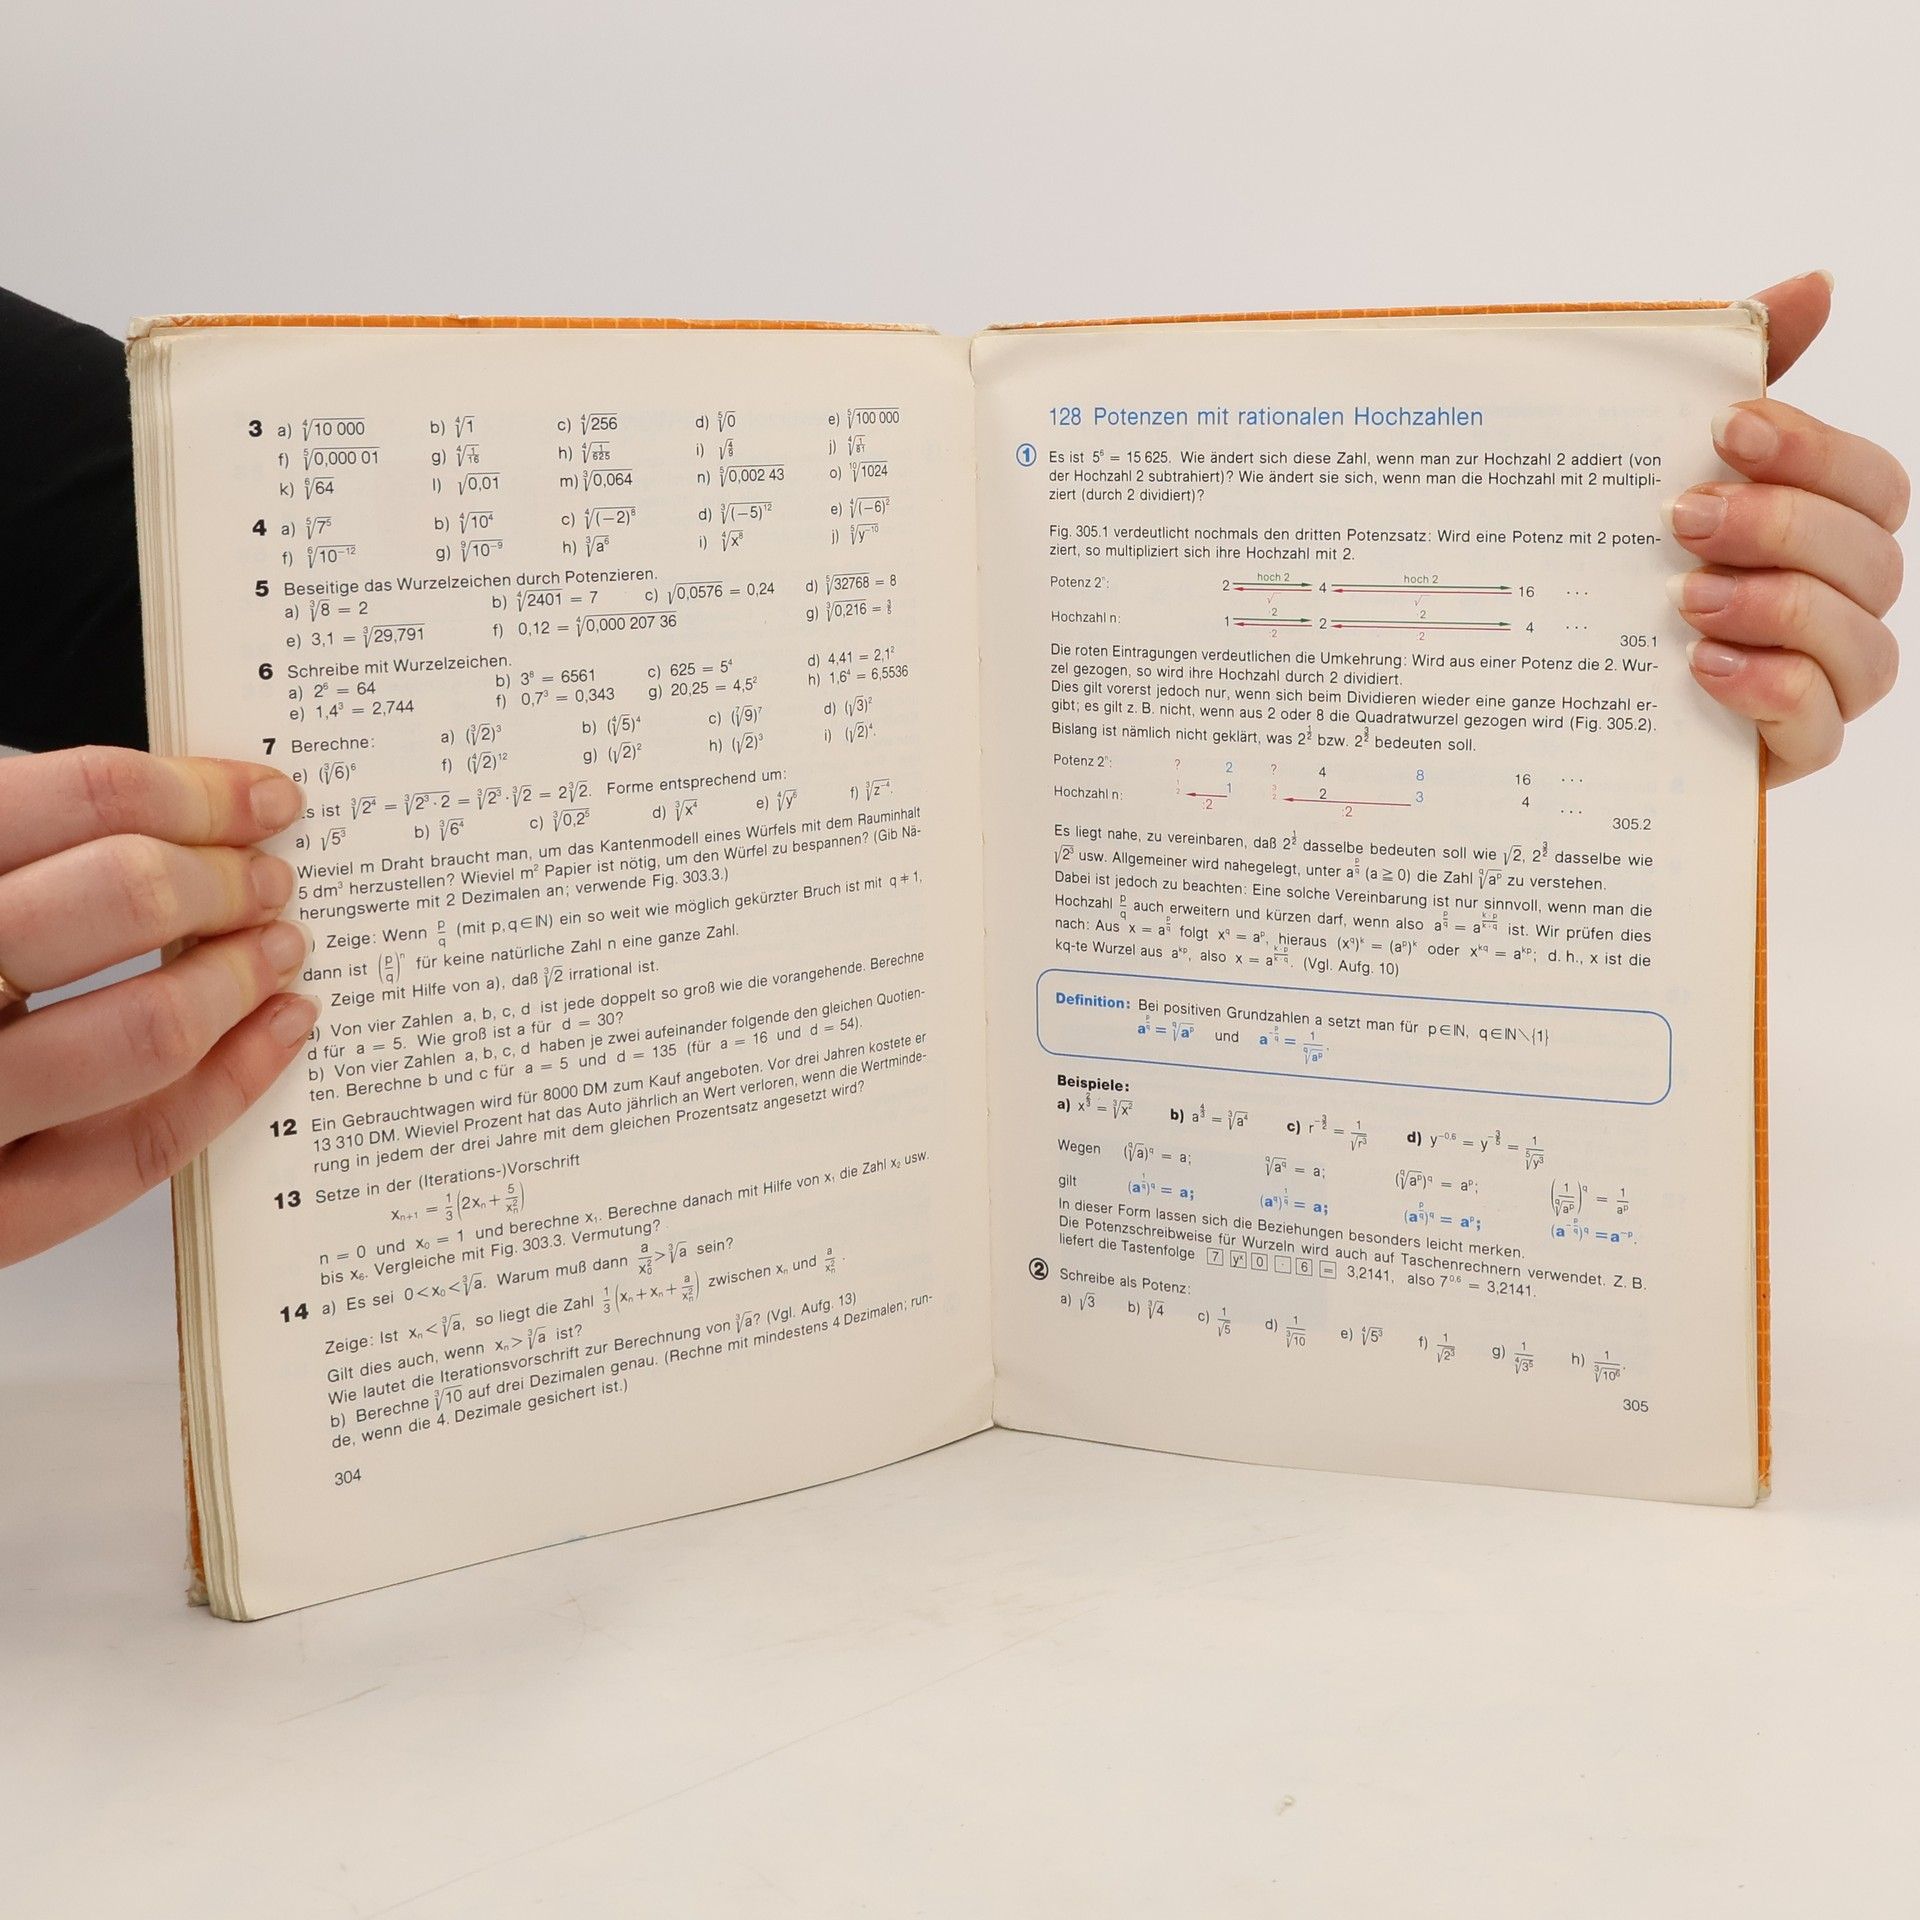 3 a) ⁴√10 000 b) ⁴√1 c) ⁴√256 d) ⁵√0 e) ⁵√100 000
f) ⁵√0,000 01 g) ⁴√1/16 h) ⁴√1/625 i) √4/9 j) ⁴√1/81
k) ⁶√64 l) √0,01 m) ³√0,064 n) ⁵√0,002 43 o) ¹⁰√1024
4 a) ⁵√7⁵ b) ⁴√10⁴ c) ⁴√(−2)⁸ d) ³√(−5)¹² e) ⁴√(−6)²
f) ⁶√10⁻¹² g) ⁹√10⁻⁹ h) ³√a⁶ i) ⁴√x⁸ j) ⁵√y⁻¹⁰
5 Beseitige das Wurzelzeichen durch Potenzieren.
a) ³√8 = 2 b) ⁴√2401 = 7 c) √0,0576 = 0,24 d) ⁵√32768 = 8
e) 3,1 = ³√29,791 f) 0,12 = ⁴√0,000 207 36 g) ³√0,216 = 3/5
6 Schreibe mit Wurzelzeichen.
a) 2⁶ = 64 b) 3⁸ = 6561 c) 625 = 5⁴ d) 4,41 = 2,1²
e) 1,4³ = 2,744 f) 0,7³ = 0,343 g) 20,25 = 4,5² h) 1,6⁴ = 6,5536
7 Berechne: a) (³√2)³ b) (⁴√5)⁴ c) (⁷√9)⁷ d) (√3)²
e) (³√6)⁶ f) (⁴√2)¹² g) (√2)² h) (√2)³ i) (√2)⁴.
ist ³√2⁴ = ³√2³·2 = ³√2³·³√2 = 2³√2. Forme entsprechend um:
a) √5³ b) ³√6⁴ c) ³√0,2⁵ d) ³√x⁴ e) ⁴√y⁶ f) ³√z⁻⁴.
Wieviel m Draht braucht man, um das Kantenmodell eines Würfels mit dem Rauminhalt
5 dm³ herzustellen? Wieviel m² Papier ist nötig, um den Würfel zu bespannen? (Gib Nä-
herungswerte mit 2 Dezimalen an; verwende Fig. 303.3.)
) Zeige: Wenn p/q (mit p,q∈ℕ) ein so weit wie möglich gekürzter Bruch ist mit q≠1,
dann ist (p/q)ⁿ für keine natürliche Zahl n eine ganze Zahl.
Zeige mit Hilfe von a), daß ³√2 irrational ist.
a) Von vier Zahlen a, b, c, d ist jede doppelt so groß wie die vorangehende. Berechne
d für a = 5. Wie groß ist a für d = 30?
b) Von vier Zahlen a, b, c, d haben je zwei aufeinander folgende den gleichen Quotien-
ten. Berechne b und c für a = 5 und d = 135 (für a = 16 und d = 54).
12 Ein Gebrauchtwagen wird für 8000 DM zum Kauf angeboten. Vor drei Jahren kostete er
13 310 DM. Wieviel Prozent hat das Auto jährlich an Wert verloren, wenn die Wertminde-
rung in jedem der drei Jahre mit dem gleichen Prozentsatz angesetzt wird?
13 Setze in der (Iterations-)Vorschrift
xₙ₊₁ = 1/3(2xₙ + 5/xₙ²)
n = 0 und x₀ = 1 und berechne x₁. Berechne danach mit Hilfe von x₁ die Zahl x₂ usw.
bis x₆. Vergleiche mit Fig. 303.3. Vermutung?
14 a) Es sei 0<x₀<³√a. Warum muß dann a/x₀²>³√a sein?
Zeige: Ist xₙ<³√a, so liegt die Zahl 1/3(xₙ+xₙ+a/xₙ²) zwischen xₙ und a/xₙ².
Gilt dies auch, wenn xₙ>³√a ist?
Wie lautet die Iterationsvorschrift zur Berechnung von ³√a? (Vgl. Aufg. 13)
b) Berechne ³√10 auf drei Dezimalen genau. (Rechne mit mindestens 4 Dezimalen; run-
de, wenn die 4. Dezimale gesichert ist.)
304
128 Potenzen mit rationalen Hochzahlen
① Es ist 5⁶ = 15 625. Wie ändert sich diese Zahl, wenn man zur Hochzahl 2 addiert (von
der Hochzahl 2 subtrahiert)? Wie ändert sie sich, wenn man die Hochzahl mit 2 multipli-
ziert (durch 2 dividiert)?
Fig. 305.1 verdeutlicht nochmals den dritten Potenzsatz: Wird eine Potenz mit 2 poten-
ziert, so multipliziert sich ihre Hochzahl mit 2.
hoch 2 hoch 2
Potenz 2ⁿ: 2 4 16 ...
√ √
·2 ·2
Hochzahl n: 1 2 4 ...
:2 :2
305.1
Die roten Eintragungen verdeutlichen die Umkehrung: Wird aus einer Potenz die 2. Wur-
zel gezogen, so wird ihre Hochzahl durch 2 dividiert.
Dies gilt vorerst jedoch nur, wenn sich beim Dividieren wieder eine ganze Hochzahl er-
gibt; es gilt z. B. nicht, wenn aus 2 oder 8 die Quadratwurzel gezogen wird (Fig. 305.2).
Bislang ist nämlich nicht geklärt, was 2^(1/2) bzw. 2^(3/2) bedeuten soll.
Potenz 2ⁿ: ? 2 ? 4 8 16 ...
Hochzahl n: 1/2 1 3/2 2 3 4 ...
:2 :2
305.2
Es liegt nahe, zu vereinbaren, daß 2^(1/2) dasselbe bedeuten soll wie √2, 2^(3/2) dasselbe wie
√2³ usw. Allgemeiner wird nahegelegt, unter a^(p/q) (a ≧ 0) die Zahl ^q√aᵖ zu verstehen.
Dabei ist jedoch zu beachten: Eine solche Vereinbarung ist nur sinnvoll, wenn man die
Hochzahl p/q auch erweitern und kürzen darf, wenn also a^(p/q) = a^(k·p/k·q) ist. Wir prüfen dies
nach: Aus x = a^(p/q) folgt x^q = a^p, hieraus (x^q)^k = (a^p)^k oder x^kq = a^kp; d. h., x ist die
kq-te Wurzel aus a^kp, also x = a^(k·p/k·q). (Vgl. Aufg. 10)
Definition: Bei positiven Grundzahlen a setzt man für p∈ℕ, q∈ℕ\{1}
a^(p/q) = ^q√a^p und a^(−p/q) = 1/^q√a^p.
Beispiele:
a) x^(2/3) = ³√x² b) a^(4/3) = ³√a⁴ c) r^(−3/2) = 1/√r³ d) y^(−0,6) = y^(−3/5) = 1/⁵√y³
Wegen (^q√a)^q = a; ^q√a^q = a; (^q√a^p)^q = a^p; (1/^q√a^p)^q = 1/a^p
gilt (a^(1/q))^q = a; (a^q)^(1/q) = a; (a^(p/q))^q = a^p; (a^(−p/q))^q = a^(−p).
In dieser Form lassen sich die Beziehungen besonders leicht merken.
Die Potenzschreibweise für Wurzeln wird auch auf Taschenrechnern verwendet. Z. B.
liefert die Tastenfolge 7 yˣ 0 . 6 = 3,2141, also 7^0,6 = 3,2141.
② Schreibe als Potenz:
a) √3 b) ³√4 c) 1/√5 d) 1/³√10 e) ⁴√5³ f) 1/√2³ g) 1/⁴√3⁵ h) 1/³√10⁶.
305